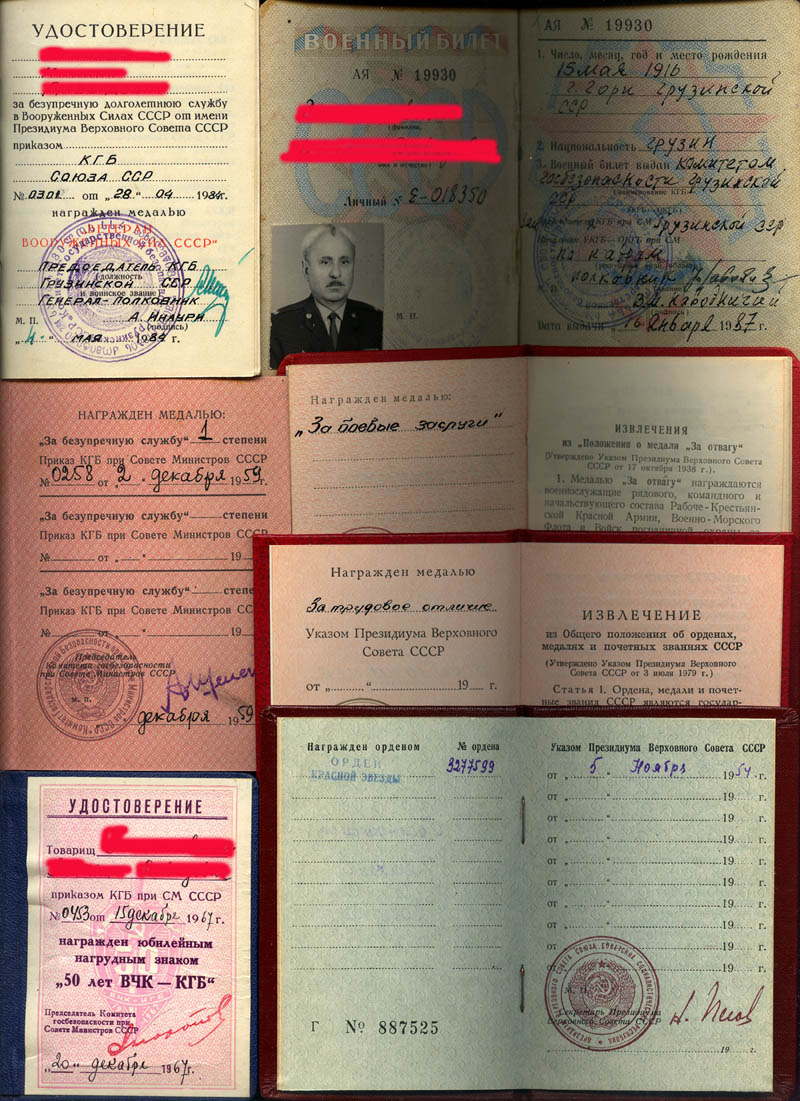 УДОСТОВЕРЕНИЕ
за безупречную долголетнюю службу
в Вооруженных Силах СССР от имени
Президиума Верховного Совета СССР
приказом
КГБ
Союза ССР
№ 0301 от „28“ 04 1984 г.
награжден медалью
„ВЕТЕРАН
ВООРУЖЕННЫХ СИЛ СССР"
Председатель КГБ
(должность
Грузинской ССР
и воинское звание)
Генерал-полковник
А. Инаури
М. П.
(подпись)
„4“ мая 1984 г.
ВОЕННЫЙ БИЛЕТ
АЯ № 19930
(фамилия,
имя и отчество)
Личный № Е-018350
М. П.
АЯ № 19930
1. Число, месяц, год и место рождения
15 мая 1916
г. Гори Грузинской
ССР
2. Национальность грузин
3. Военный билет выдан Комитетом
госбезопасности Грузинской
ССР
Грузинской ССР
по кадрам
полковник
Дата выдачи „16 января 1987 г.
НАГРАЖДЕН МЕДАЛЬЮ:
„За безупречную службу" 1 степени
Приказ КГБ при Совете Министров СССР
№ 0258 от „2“ декабря 1959 г.
„За безупречную службу" степени
Приказ КГБ при Совете Министров СССР
№ от „ “ 19
„За безупречную службу" степе
Приказ КГБ при Совете Министров СС
№ от „ “ 19
Председатель
Комитета госбезопасности
при Совете Министров СССР
М. П.
декабря 1959
Награжден медалью:
„За боевые заслуги"
ИЗВЛЕЧЕНИЯ
из „Положения о медали „За отвагу"
(Утверждено Указом Президиума Верховного Совета
СССР от 17 октября 1938 г.).
1. Медалью „За отвагу" награждаются
военнослужащие рядового, командного и
начальствующего состава Рабоче-Крестьян-
ской Красной Армии, Военно-Морского
Флота и Войск пограничной охраны за
Награжден медалью
За трудовое отличие
Указом Президиума Верховного
Совета СССР
от „ “ 19 г.
ИЗВЛЕЧЕНИЕ
из Общего положения об орденах,
медалях и почетных званиях СССР
(Утверждено Указом Президиума Верховного
Совета СССР от 3 июля 1979 г.)
Статья 1. Ордена, медали и почет-
ные звания СССР являются государ-
УДОСТОВЕРЕНИЕ
Товарищ
приказом КГБ при СМ СССР
№ 0453 от 15 декабря 1967 г.
награжден юбилейным
нагрудным знаком
„50 лет ВЧК—КГБ"
Председатель Комитета
госбезопасности при
Совете Министров СССР
„20“ декабря 1967 г.
Награжден орденом № ордена
ОРДЕН
КРАСНОЙ ЗВЕЗДЫ
3277599
Г № 887525
Указом Президиума Верховного Совета СССР
от „5“ Ноября 1954 г.
от „ “ 19 г.
от „ “ 19 г.
от „ “ 19 г.
от „ “ 19 г.
от „ “ 19 г.
от „ “ 19 г.
от „ “ 19 г.
от „ “ 19 г.
от „ “ 19 г.
М. П.
Секретарь Президиума
Верховного Совета СССР
19 г.